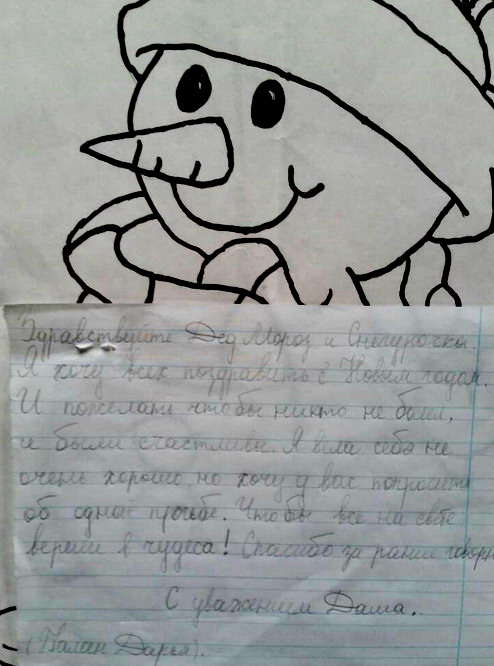 Здравствуйте Дед Мороз и Снегурочка.
Я хочу всех поздравить с Новым годом.
И пожелать чтобы никто не болил,
и были счастливы. Я вела себя не
очень хорошо, но хочу у вас попросить
об одной прозьбе. Чтобы все на свете
верили в чудеса! Спасибо за рание
С уважением Даша.
Дарья).